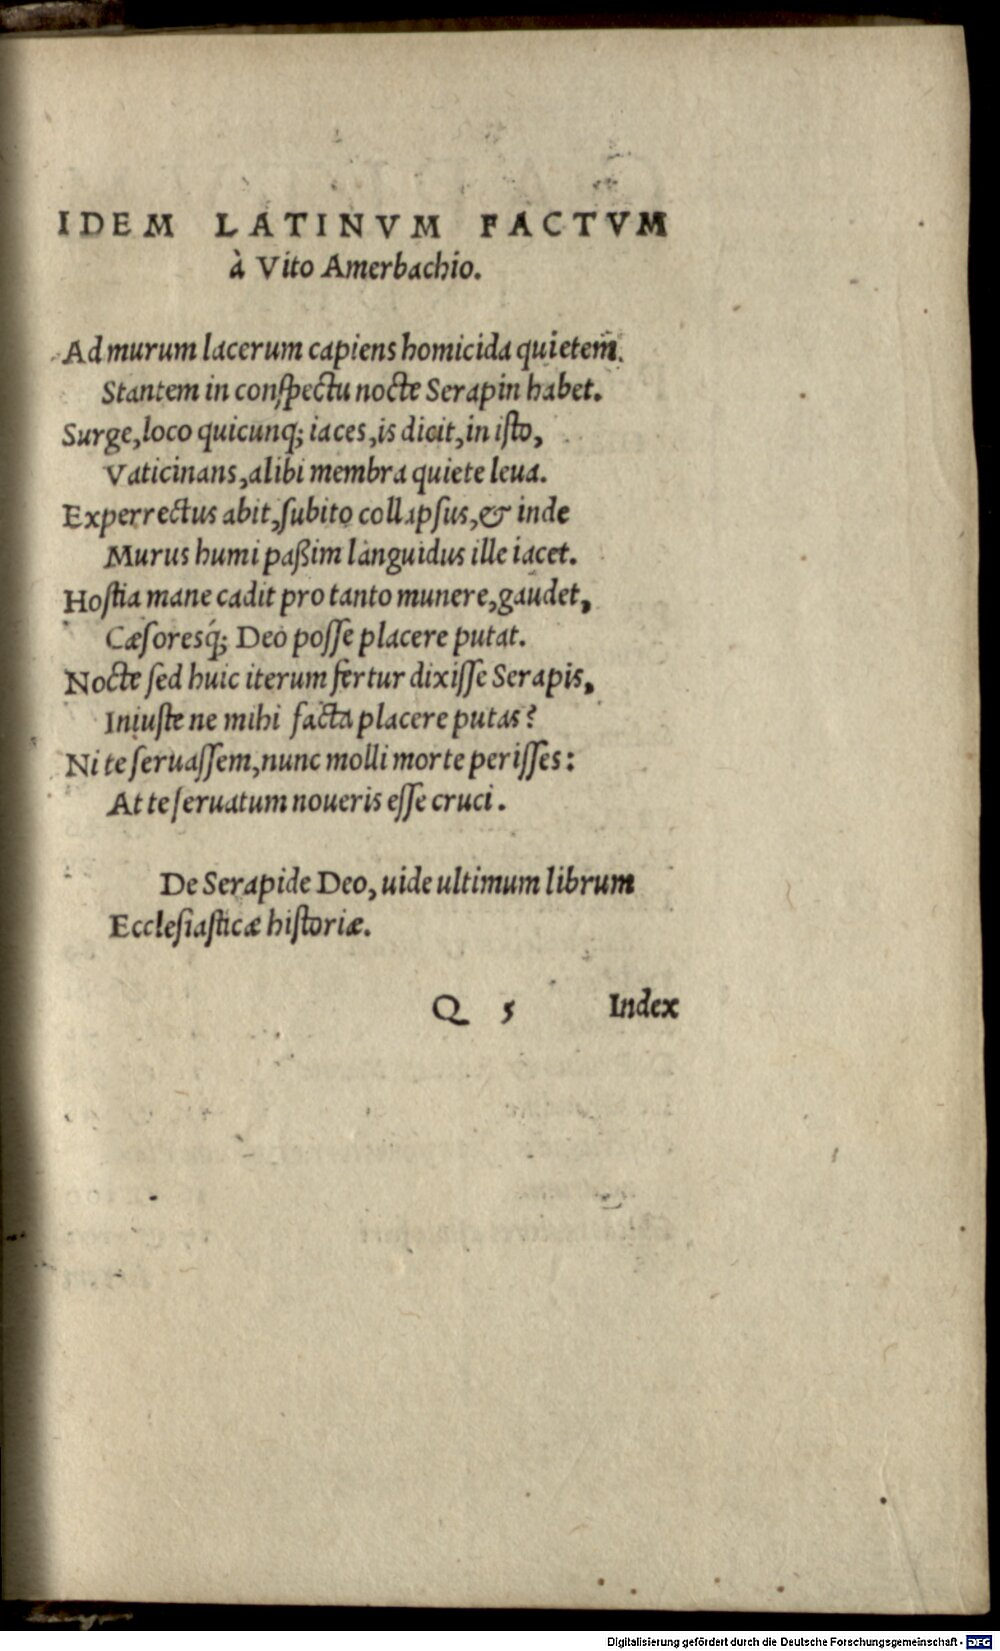 IDEM LATINVM FACTVM
à Vito Amerbachio.
Ad murum lacerum capiens homicida quietem.
Stantem in conſpectu nocte Serapin habet.
Surge, loco quicunq; iaces, is dicit, in iſto,
Vaticinans, alibi membra quiete leua.
Experrectus abit, ſubito collapſus, & inde
Murus humi paßim languidus ille iacet.
Hoſtia mane cadit pro tanto munere, gaudet,
Cæſoresq́; Deo poſſe placere putat.
Nocte ſed huic iterum fertur dixiſſe Serapis,
Iniuſte ne mihi facta placere putas?
Ni te ſeruaſſem, nunc molli morte periſſes:
At te ſeruatum noueris eſſe cruci.
De Serapide Deo, uide ultimum librum
Eccleſiaſticæ hiſtoriæ.
Q 5 Index
Digitalisierung gefördert durch die Deutsche Forschungsgemeinschaft - DFG